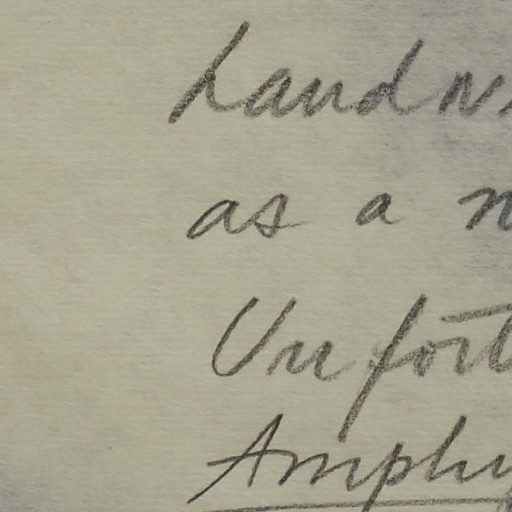 Landw
as a n
Unfort
Amphi